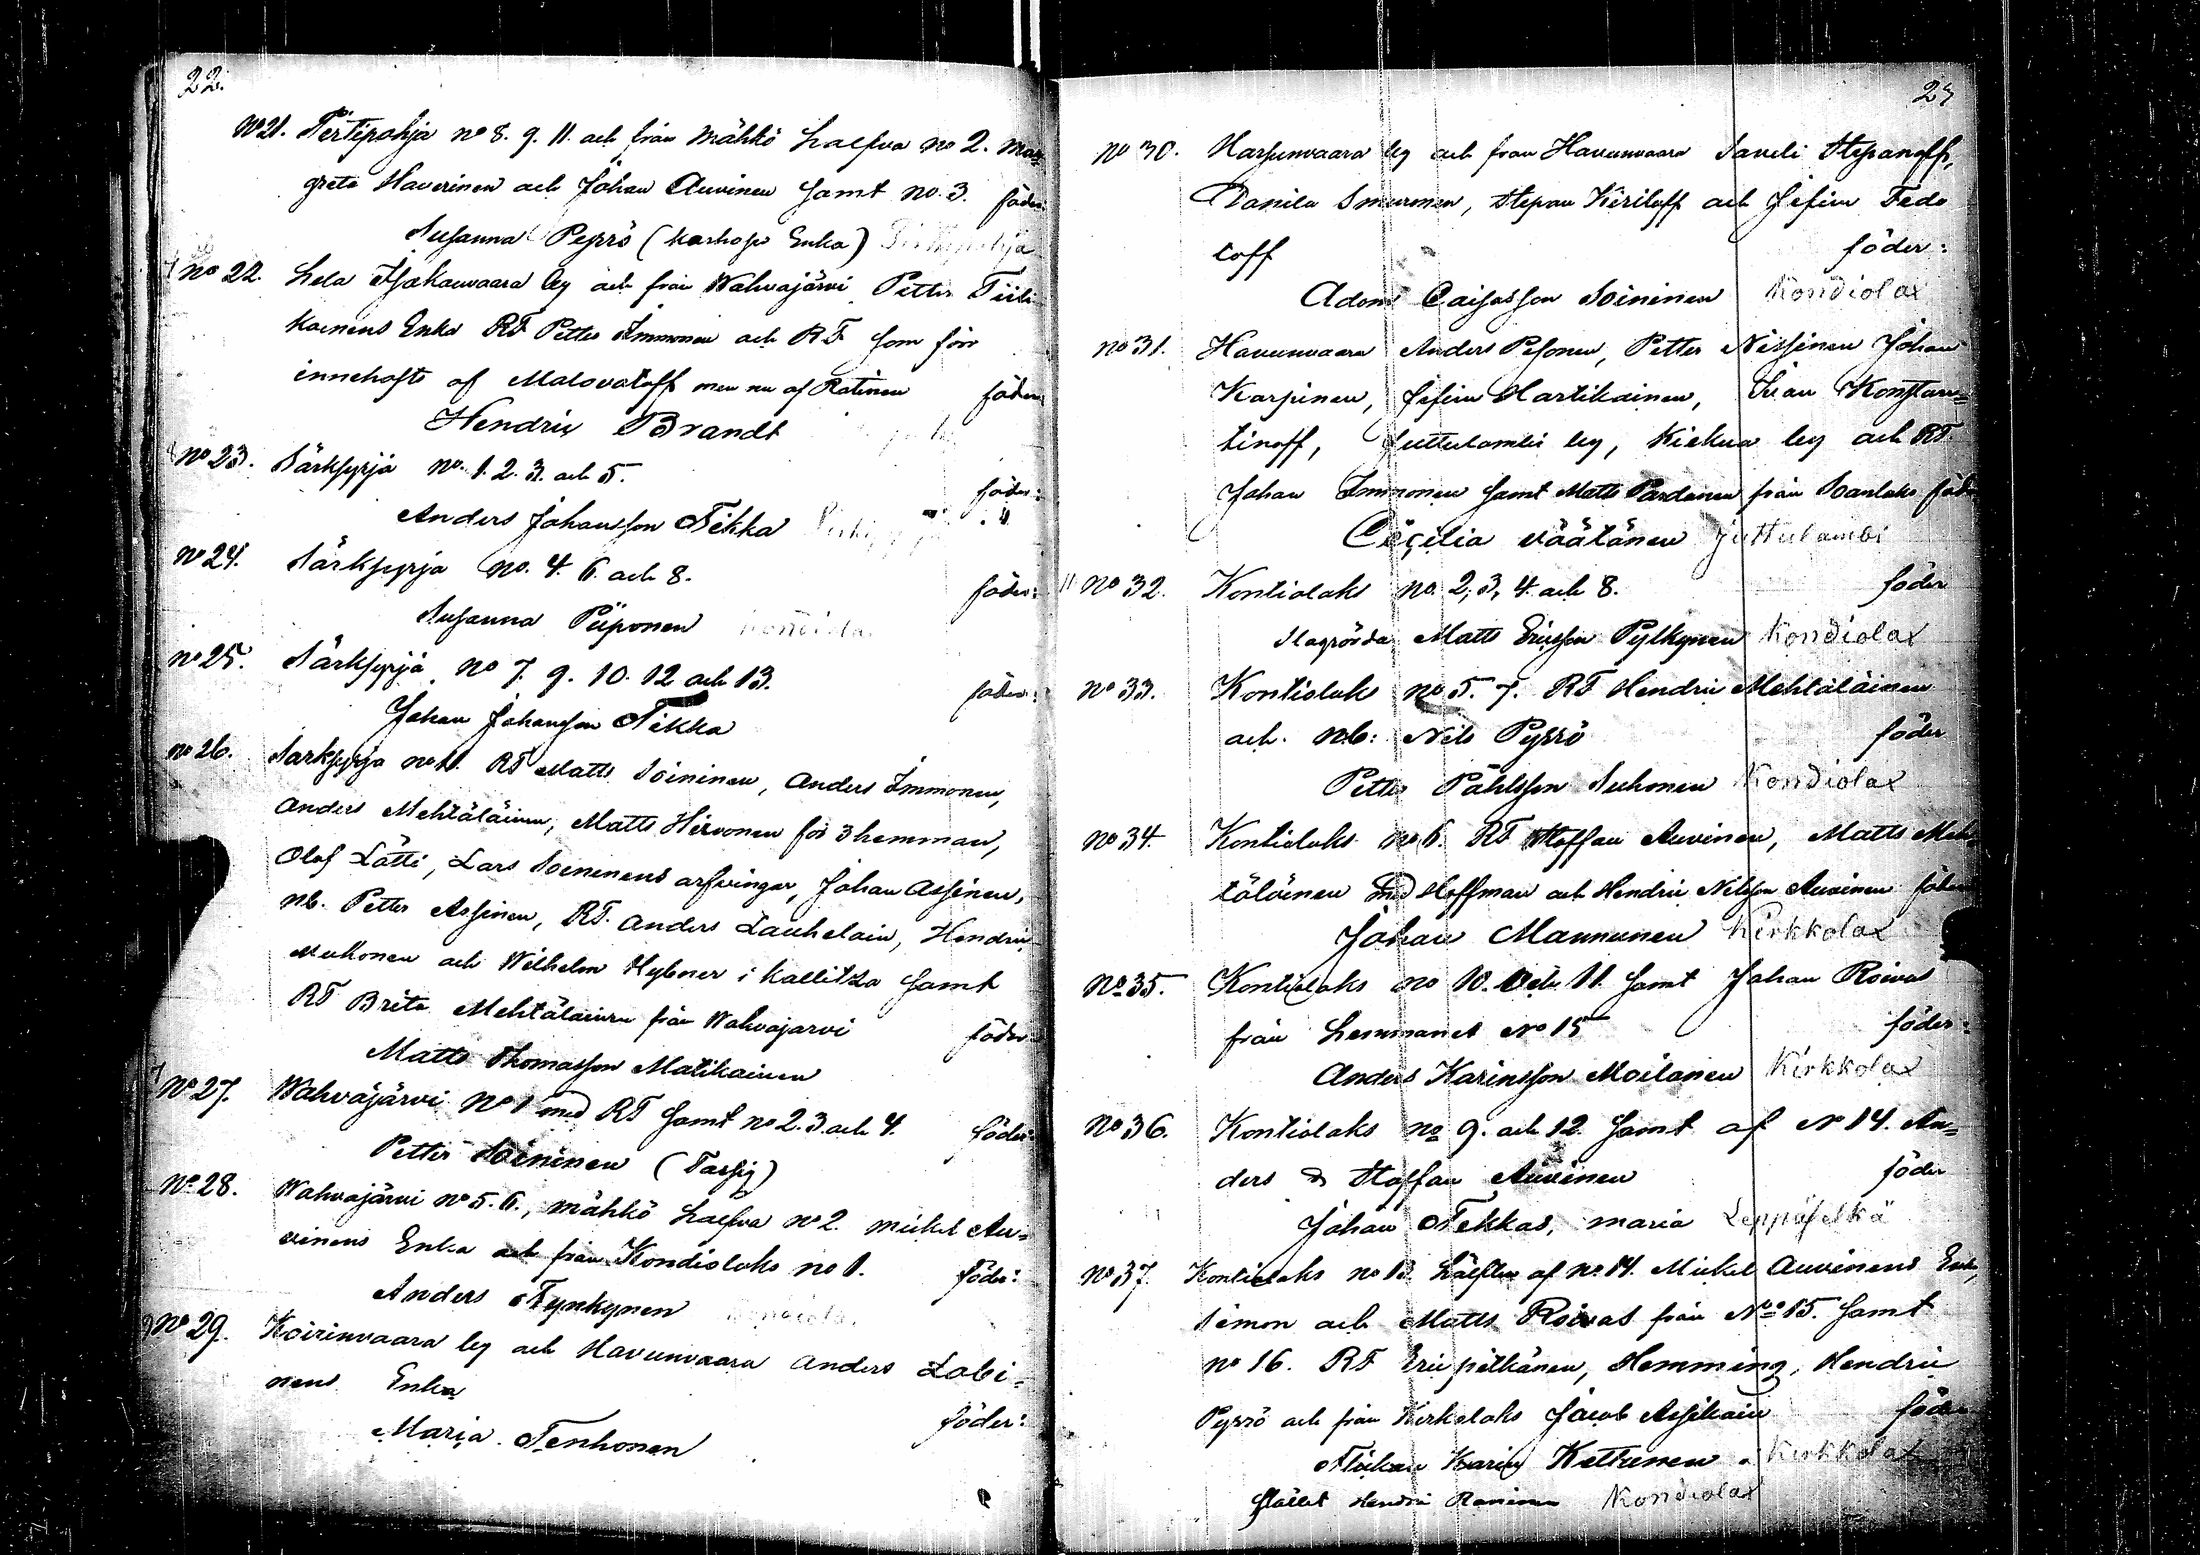 22.
No 21. Pertipohja no 8. 9. 11. och från Mähkö halfva no 2. Mar-
greta Haverinen och Johan Auvinen samt no. 3. föder
Susanna Pyssö (karhope Enka)
no 22. Hela Isakanvaara by och från Wahvajärvi Petter Tiili-
kainens Enka RF Petter Immonen och RF som förr
innehafts af Malovatoff men nu af Ratinen föder
Hendric Brandt
no 23. Särkpyrjä no. 1. 2. 3. och 5. föder:
Anders Johansson Tikka
no 24. Särkpyrjä no. 4. 6. och 8. föder:
Susanna Piiponen Kondiolax
no 25. Särkpyrjä no 7. 9. 10. 12 och 13. föder:
Johan Johansson Tikka
no 26. Särkpyrja no 11. RF Matts Soininen, Anders Immonen,
Anders Mehtäläinen, Matts Hirvonen för 3 hemman,
Olof Lätti, Lars Soininens arfvingar, Johan Assinen,
nb. Petter Assinen, RF. Anders Laukelain, Hendric
Mukonen och Wilhelm Hybner i Kallitka samt
RF Brita Mehtäläinen från Wahvajarvi föder:
Matts Thomasson Matikainen
No 27. Wahvajärvi No 1 med RF samt no 2. 3. och 4. föder:
Petter Soininen (Tassig)
No 28. Wahvajärvi no 5. 6., Mähkö halfva no 2. Mickel Au-
vinens Enka och från Kondiolaks no 1. föder:
Anders Tynkynen
No 29. Koirinvaara by och Havunvaara Anders Lobi-
nens Enka föder:
Maria Tenhonen
23
no 30. Harpunvaara by och från Havunvaara Saveli Stepanoff,
Danila Smurmen, Stepan Kiriloff och Jefim Fedo
toff föder:
Adam Caisasson Soininen Kondiolax
no 31. Havunvaara Anders Pesonen, Petter Nissinen Johan
Karpinen, Jefim Hartikainen, Ivan Konstan=
tinoff, Juttulambi by, Kiekua by och RF.
Johan Immonen samt Matts Pardanen från Soanlaks föder
Cecilia Väätänen Juttulambi
no 32. Kontiolaks no. 2, 3, 4. och 8. föder
Matts Ericsson Pylkynen Kondiolax
no 33. Kontiolak no 5. 7. RF Hendric Mehtäläinen
och nb: Nils Pyssö föder
Petter Påhlsson Suhonen Kondiolax
no 34. Kontiolaks no 6. RF Staffan Auvinen, Matts Meh-
täläinen med Hoffman och Hendric Nilsson Auvinen föder
Johan Mannunen Kirkkolax
No 35. Kontiolaks no 10. och 11. samt Johan Roivas
från hemmanet No 15 föder:
Anders Karinsson Moilanen Kirkkolax
No 36. Kontiolaks no 9. och 12. samt af No 14. An=
ders & Staffan Auvinen föder
Johan Tekkas, maria Leppäselkä
No 37. Kontiolaks no 13. hälften af no 14. Mickel Auvinens Enka,
Simon och Matts Roivas från No 15. samt
no 16. RF Eric pitkänen, Hemming, Hendric
Pyssö och från Kirkolaks Jacob Assikain föder
Flickan Karin Kettunen Kirkkolax
stället Hendric Kondiolax